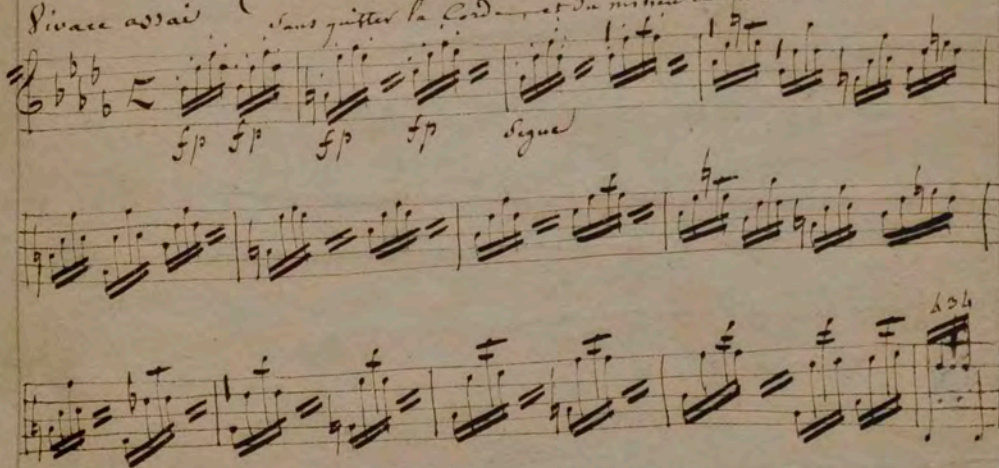 Vivace assai Sans quitter la Corde, et du milieu
fp fp fp fp Segue
434